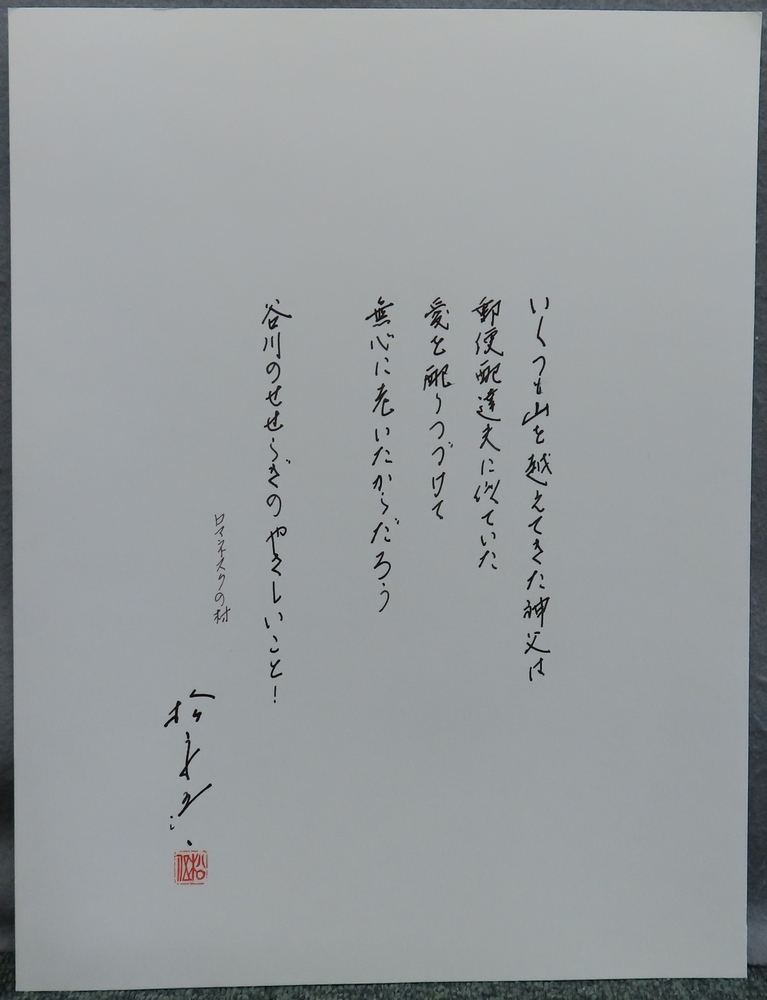 いくつも山を越えてきた神父は
郵便配達夫に似ていた
愛を配りつづけて
無心に老いたからだろう
谷川のせせらぎのやさしいこと！
ロマネスクの村
松永伍一